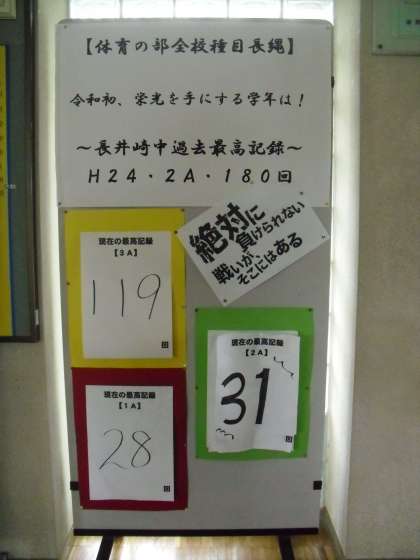 【体育の部全校種目長縄】
令和初、栄光を手にする学年は！
～長井崎中過去最高記録～
H24・2A・180回
絶対に
負けられない
戦いが、
そこにはある
現在の最高記録
【3A】
119
回
現在の最高記録
【2A】
31
回
現在の最高記録
【1A】
28
回